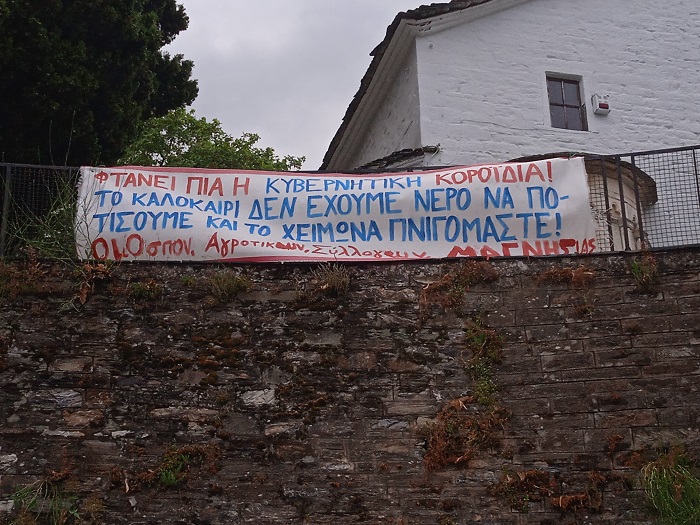 ΦΤΑΝΕΙ ΠΙΑ Η ΚΥΒΕΡΝΗΤΙΚΗ ΚΟΡΟΪΔΙΑ!
ΤΟ ΚΑΛΟΚΑΙΡΙ ΔΕΝ ΕΧΟΥΜΕ ΝΕΡΟ ΝΑ ΠΟ-
ΤΙΣΟΥΜΕ ΚΑΙ ΤΟ ΧΕΙΜΩΝΑ ΠΝΙΓΟΜΑΣΤΕ!
Ομοσπον. Αγροτικών, Συλλογων, ΜΑΓΝΗΣΙΑΣ